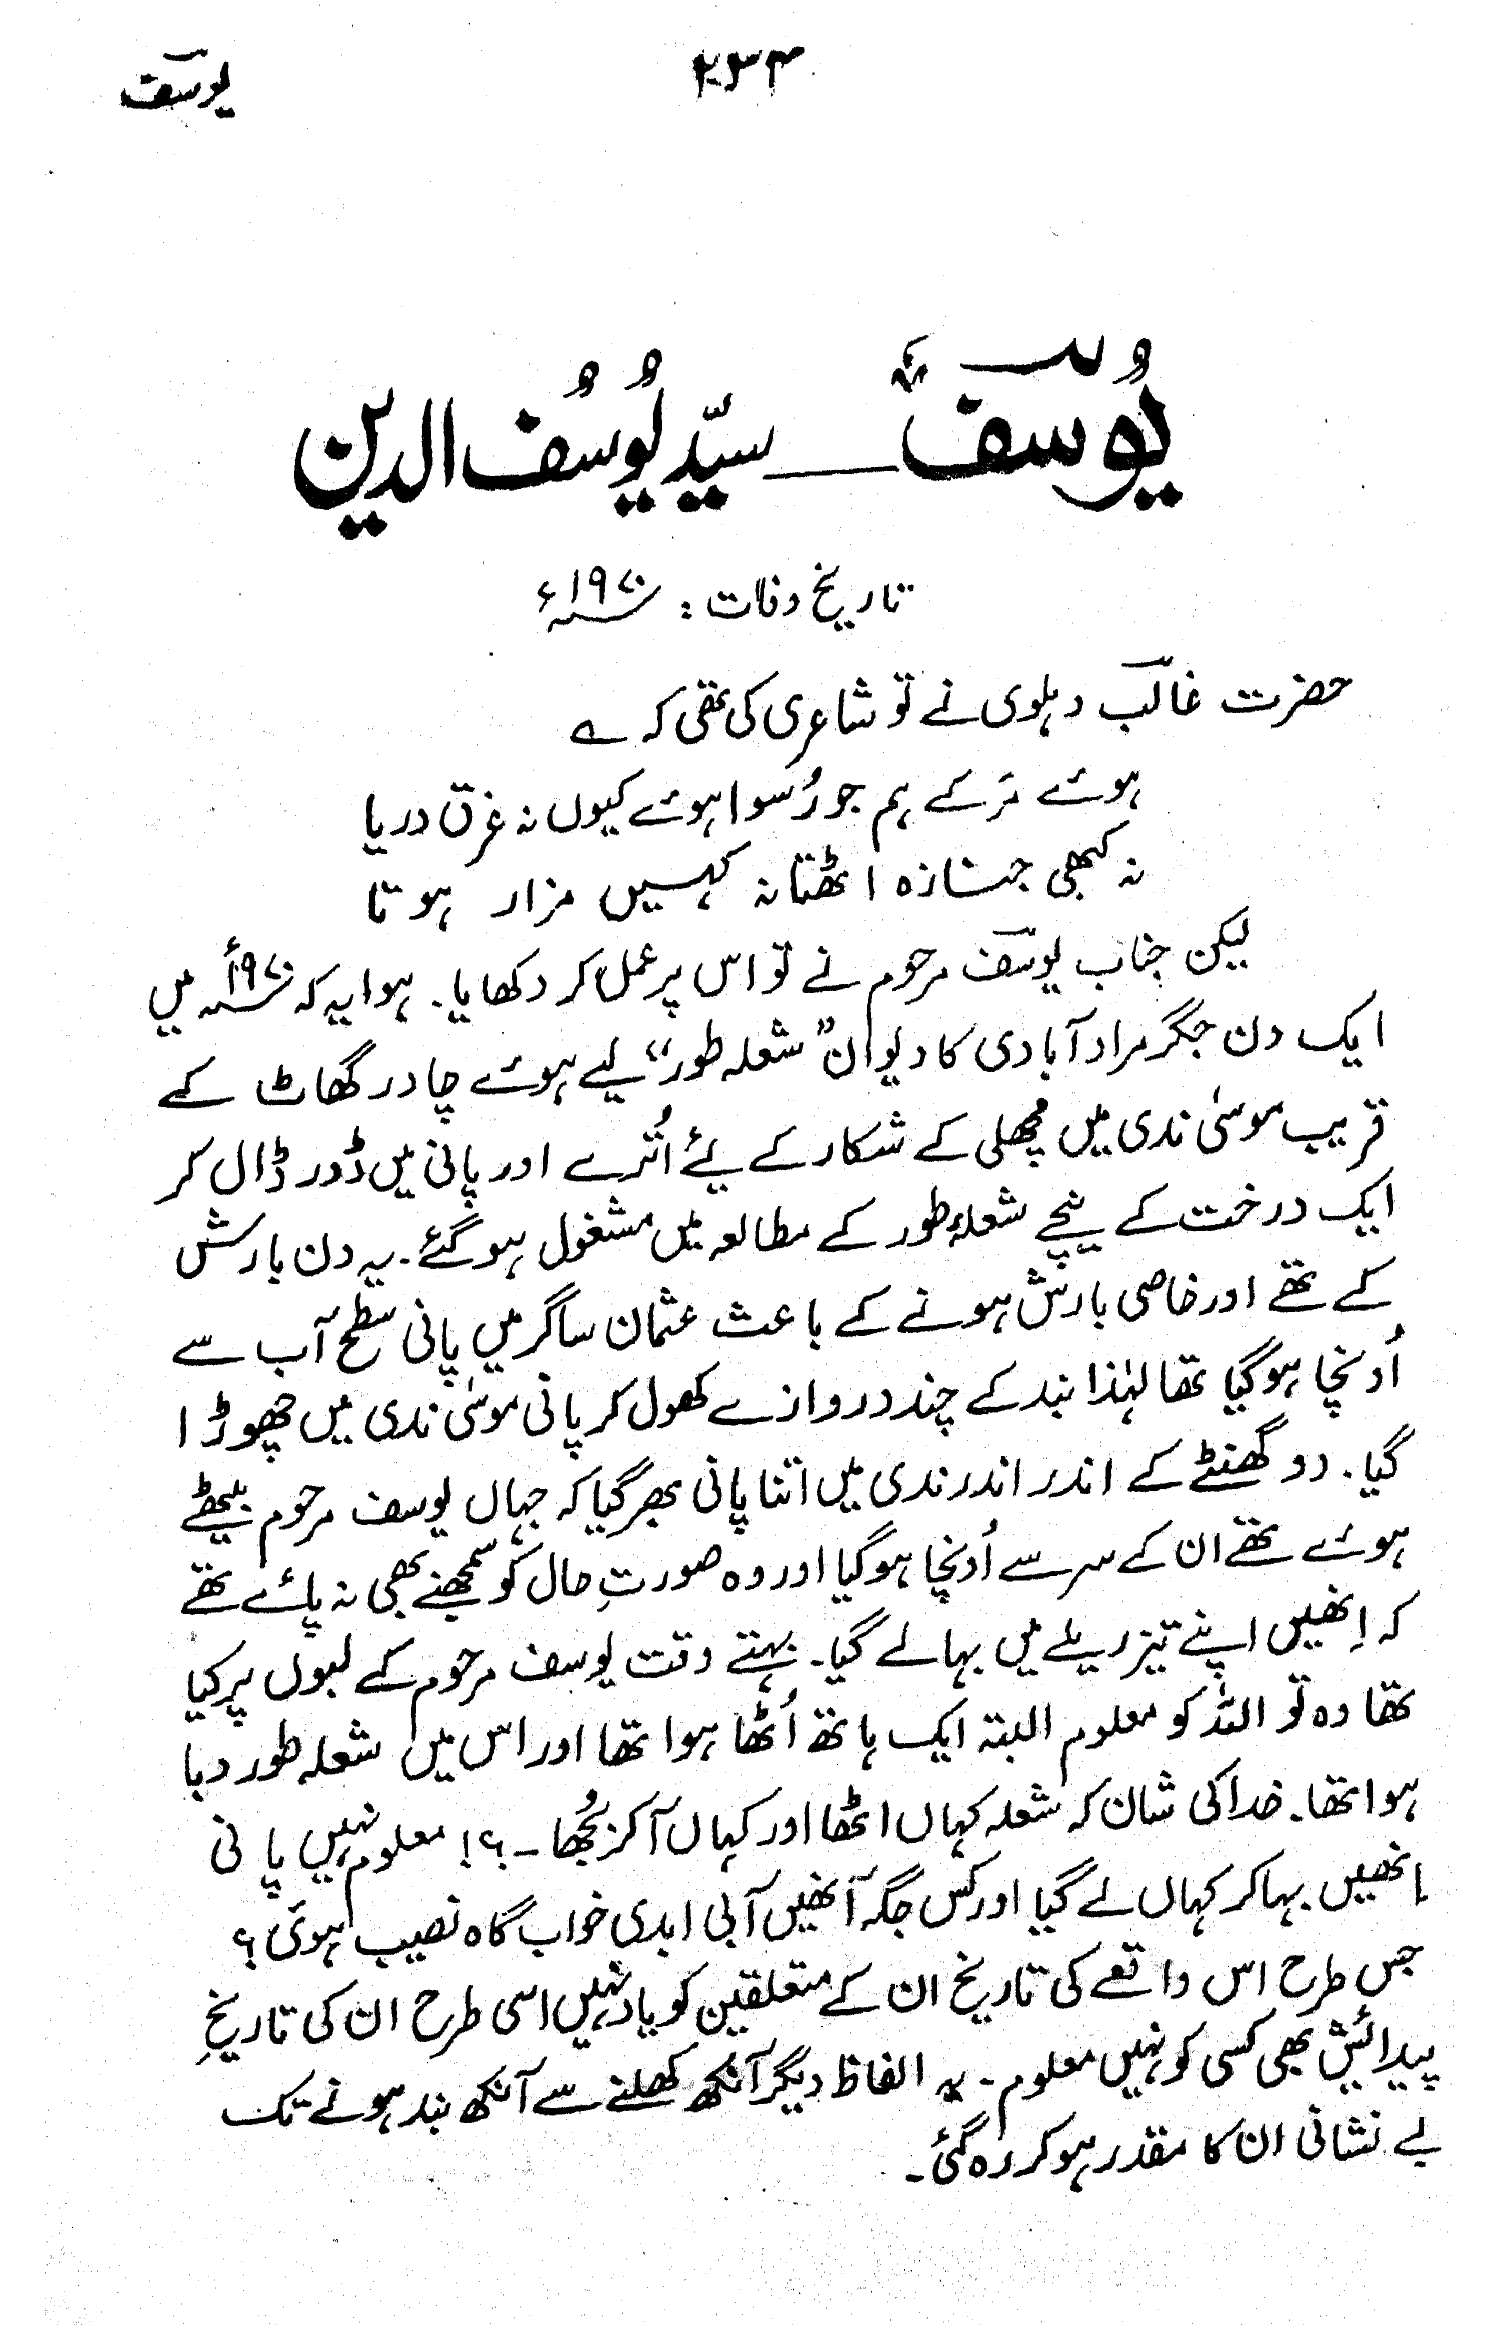 ۲۳۴
یوسف
یُوسف ـــــ سیّد یُوسُف الدین
تاریخ وفات : ۱۹۷۰ء
حضرت غالب دہلوی نے تو شاعری کی تھی کہ ے
ہوئے مَر کے ہم جو رُسوا ہوئے کیوں نہ غرق دریا
نہ کبھی جنازہ اٹھتا نہ کہیں مزار ہوتا
لیکن جناب یوسف مرحوم نے تو اس پر عمل کر دکھایا۔ ہوا یہ کہ ۱۹۷۰ء میں
ایک دن جگر مرادآبادی کا دیوان ”شعلہ طور“ لیے ہوئے چادر گھاٹ کے
قریب موسیٰ ندی میں مچھلی کے شکار کے لیے اُترے اور پانی میں ڈور ڈال کر
ایک درخت کے نیچے شعلۂ طور کے مطالعہ میں مشغول ہو گئے۔ یہ دن بارش
کے تھے اور خاصی بارش ہونے کے باعث عثمان ساگر میں پانی سطح آب سے
اُونچا ہو گیا تھا لہٰذا بند کے چند دروازے کھول کر پانی موسیٰ ندی میں چھوڑا
گیا۔ دو گھنٹے کے اندر اندر ندی میں اتنا پانی بھر گیا کہ جہاں یوسف مرحوم بیٹھے
ہوئے تھے ان کے سر سے اُونچا ہو گیا اور وہ صورتِ حال کو سمجھنے بھی نہ پائے تھے
کہ اِنھیں اپنے تیز ریلے میں بہا لے گیا۔ بہتے وقت یوسف مرحوم کے لبوں پر کیا
تھا وہ تو اللہ کو معلوم البتہ ایک ہاتھ اُٹھا ہوا تھا اور اس میں شعلہ طور دبا
ہوا تھا۔ خدا کی شان کہ شعلہ کہاں اٹھا اور کہاں آ کر بُجھا ۔؟! معلوم نہیں پانی
اِنھیں بہا کر کہاں لے گیا اور کس جگہ اُنھیں آبی ابدی خواب گاہ نصیب ہوئی؟
جس طرح اس واقعے کی تاریخ ان کے متعلقین کو یاد نہیں اسی طرح ان کی تاریخِ
پیدائش بھی کسی کو نہیں معلوم۔ بہ الفاظ دیگر آنکھ کھلنے سے آنکھ بند ہونے تک
بے نشانی ان کا مقدر ہو کر رہ گئی۔